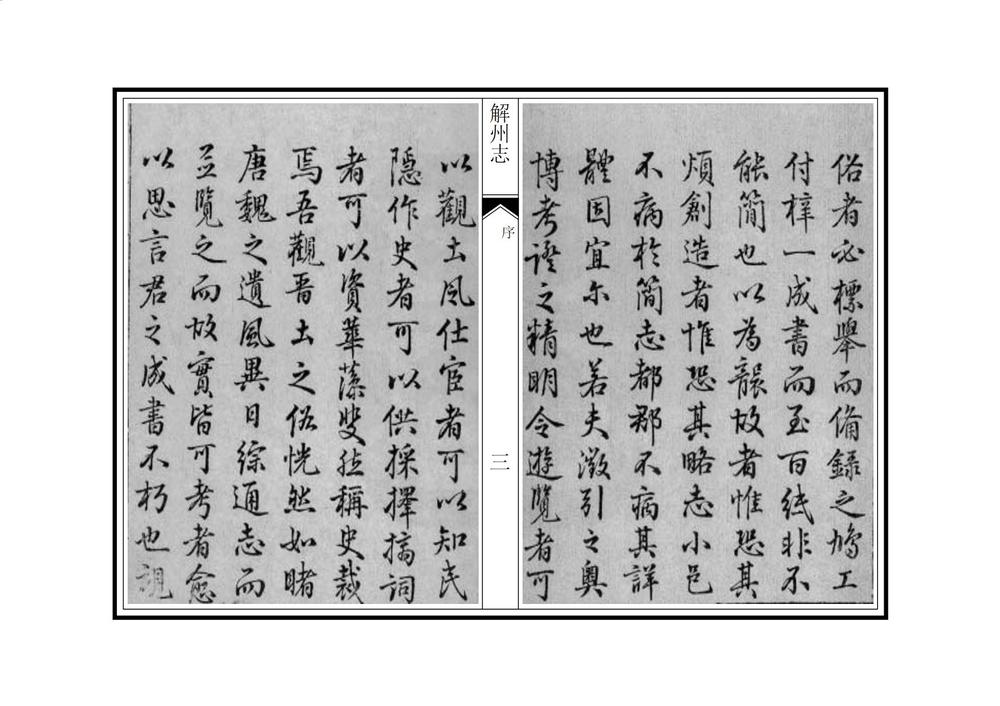 俗者必標舉而備錄之鳩工
付梓一成書而至百紙非不
能簡也以為襲故者惟恐其
煩創造者惟恐其略志小邑
不病於簡志都郡不病其詳
體固宜尔也若夫徵引之奧
博考證之精明令遊覽者可
解州志
序
三
以觀土風仕宦者可以知民
隱作史者可以供採擇摛詞
者可以資華藻斐然稱史裁
焉吾觀晋土之俗恍然如睹
唐魏之遺風異日綜通志而
並覽之而故實皆可考者愈
以思言君之成書不朽也視